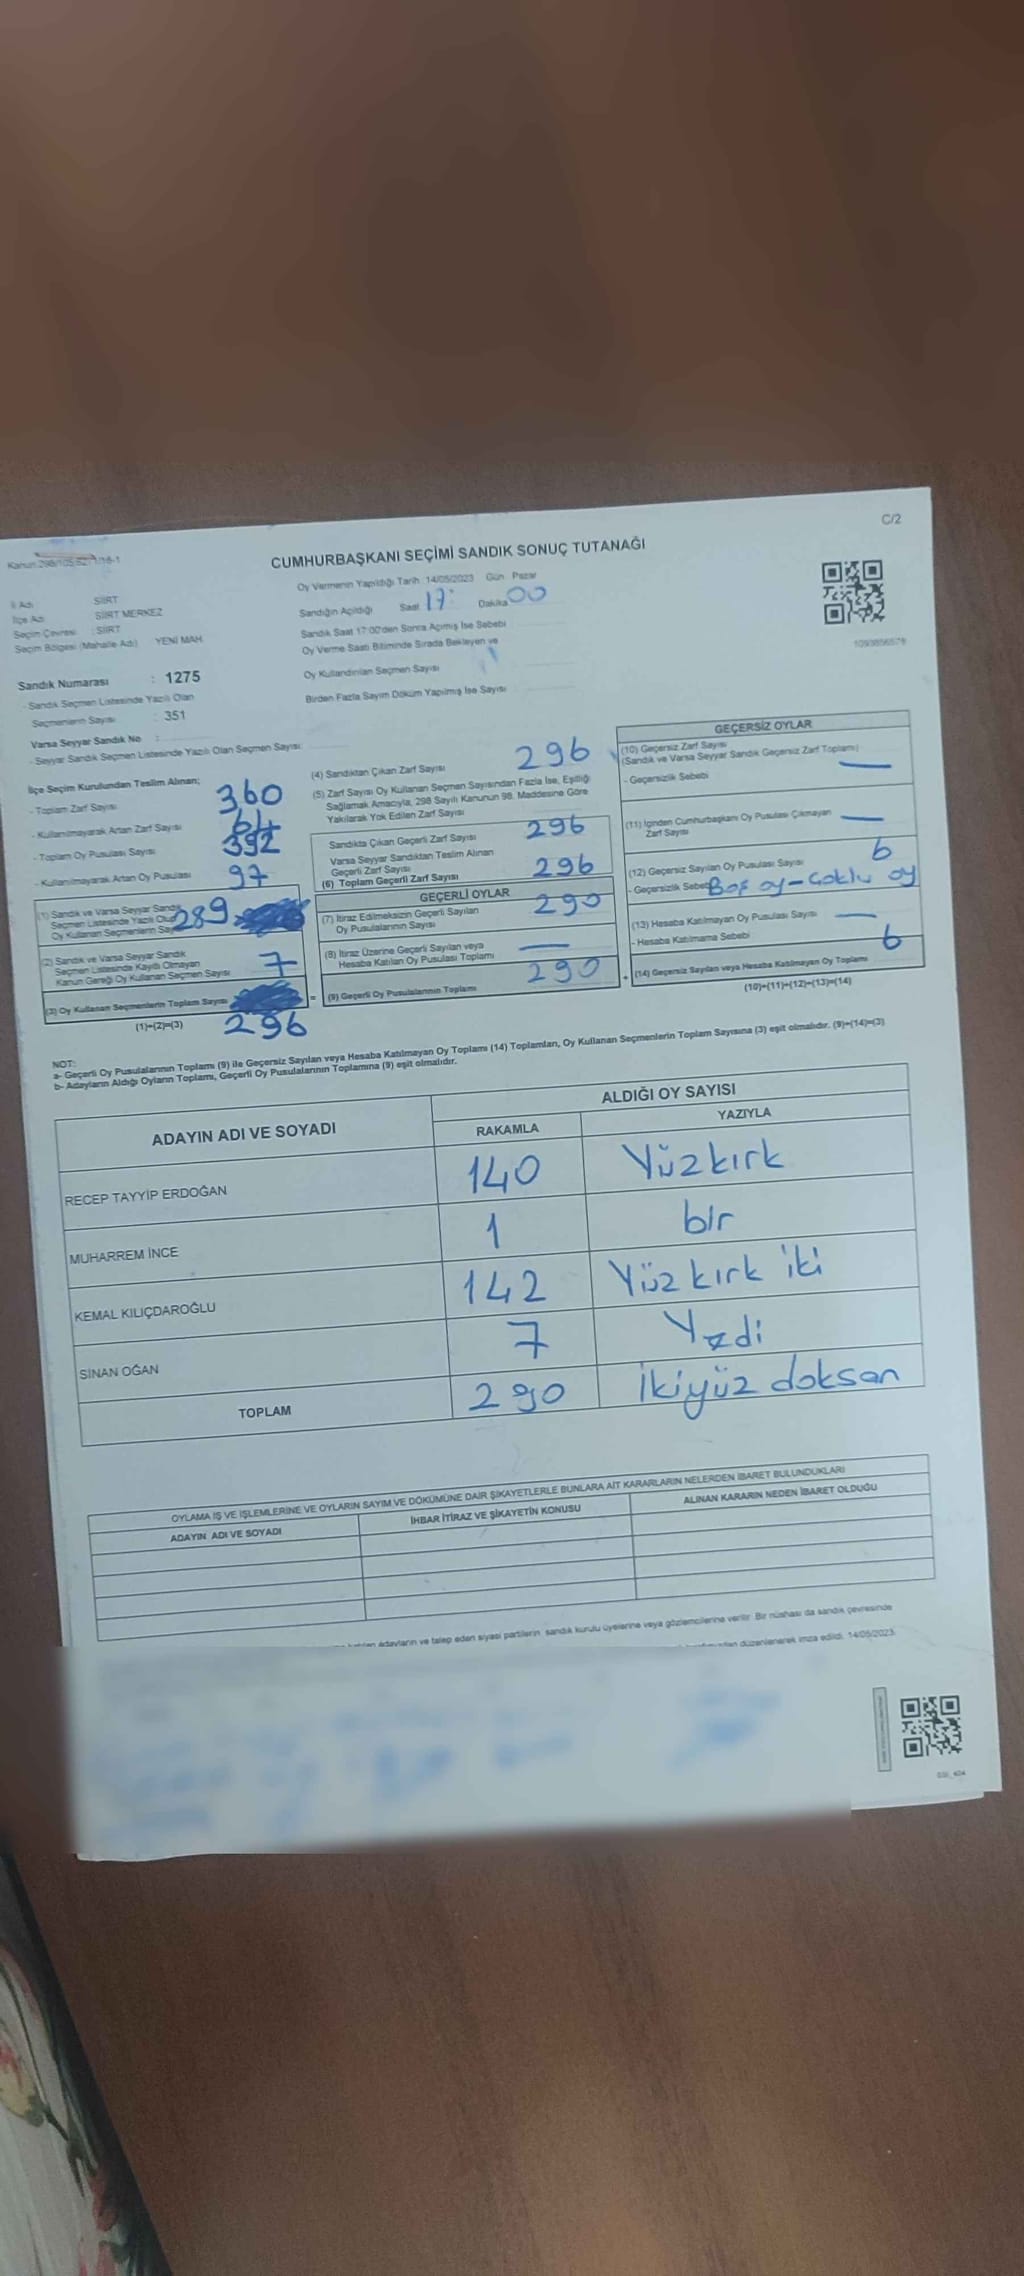 C/2
Kanun 298/105,
CUMHURBAŞKANI SEÇİMİ SANDIK SONUÇ TUTANAĞI
Oy Vermenin Yapıldığı Tarih 14/05/2023 Gün Pazar
İl Adı SİİRT
İlçe Adı SİİRT MERKEZ
Seçim Çevresi : SİİRT
Seçim Bölgesi (Mahalle Adı) YENİ MAH.
Sandığın Açıldığı Saat 17: Dakika 00
Sandık Saat 17:00'den Sonra Açımış İse Sebebi
Oy Verme Saati Bitiminde Sırada Bekleyen ve
Oy Kullandırılan Seçmen Sayısı
Birden Fazla Sayım Döküm Yapılmış İse Sayısı
Sandık Numarası : 1275
- Sandık Seçmen Listesinde Yazılı Olan
Seçmenlerin Sayısı : 351
Varsa Seyyar Sandık No :
- Seyyar Sandık Seçmen Listesinde Yazılı Olan Seçmen Sayısı
İlçe Seçim Kurulundan Teslim Alınan;
- Toplam Zarf Sayısı 360
- Kullanılmayarak Artan Zarf Sayısı 64
- Toplam Oy Pusulası Sayısı
- Kullanılmayarak Artan Oy Pusulası 97
(1) Sandık ve Varsa Seyyar Sandık
Seçmen Listesinde Yazılı Olup 289
Oy Kullanan Seçmenlerin Sayısı
(2) Sandık ve Varsa Seyyar Sandık
Seçmen Listesinde Kayıtlı Olmayan
Kanun Gereği Oy Kullanan Seçmen Sayısı 7
(3) Oy Kullanan Seçmenlerin Toplam Sayısı
(1)+(2)=(3) 296
(4) Sandıktan Çıkan Zarf Sayısı 296
(5) Zarf Sayısı Oy Kullanan Seçmen Sayısından Fazla İse, Eşitliği
Sağlamak Amacıyla, 298 Sayılı Kanunun 98. Maddesine Göre
Yakılarak Yok Edilen Zarf Sayısı
Sandıkta Çıkan Geçerli Zarf Sayısı 296
Varsa Seyyar Sandıktan Teslim Alınan
Geçerli Zarf Sayısı
(6) Toplam Geçerli Zarf Sayısı 296
GEÇERLİ OYLAR
(7) İtiraz Edilmeksizin Geçerli Sayılan 290
Oy Pusulalarının Sayısı
(8) İtiraz Üzerine Geçerli Sayılan veya —
Hesaba Katılan Oy Pusulası Toplamı
= (9) Geçerli Oy Pusulalarının Toplamı 290
GEÇERSİZ OYLAR
(10) Geçersiz Zarf Sayısı
(Sandık ve Varsa Seyyar Sandık Geçersiz Zarf Toplamı) —
- Geçersizlik Sebebi
(11) İçinden Cumhurbaşkanı Oy Pusulası Çıkmayan —
Zarf Sayısı
(12) Geçersiz Sayılan Oy Pusulası Sayısı 6
- Geçersizlik Sebebi Boş oy - Çoklu oy
(13) Hesaba Katılmayan Oy Pusulası Sayısı —
- Hesaba Katılmama Sebebi
+ (14) Geçersiz Sayılan veya Hesaba Katılmayan Oy Toplamı 6
(10)+(11)+(12)+(13)=(14)
NOT:
a- Geçerli Oy Pusulalarının Toplamı (9) ile Geçersiz Sayılan veya Hesaba Katılmayan Oy Toplamı (14) Toplamları, Oy Kullanan Seçmenlerin Toplam Sayısına (3) eşit olmalıdır. (9)+(14)=(3)
b- Adayların Aldığı Oyların Toplamı, Geçerli Oy Pusulalarının Toplamına (9) eşit olmalıdır.
ADAYIN ADI VE SOYADI ALDIĞI OY SAYISI
RAKAMLA YAZIYLA
RECEP TAYYİP ERDOĞAN 140 Yüzkırk
MUHARREM İNCE 1 bir
KEMAL KILIÇDAROĞLU 142 Yüzkırk iki
SİNAN OĞAN 7 Yedi
TOPLAM 290 İkiyüz doksan
OYLAMA İŞ VE İŞLEMLERİNE VE OYLARIN SAYIM VE DÖKÜMÜNE DAİR ŞİKAYETLERLE BUNLARA AİT KARARLARIN NELERDEN İBARET BULUNDUKLARI
ADAYIN ADI VE SOYADI İHBAR İTİRAZ VE ŞİKAYETİN KONUSU ALINAN KARARIN NEDEN İBARET OLDUĞU
adayların ve talep eden siyasi partilerin sandık kurulu üyelerine veya gözlemcilerine verilir. Bir nüshası da sandık çevresinde
düzenlenerek imza edildi. 14/05/2023